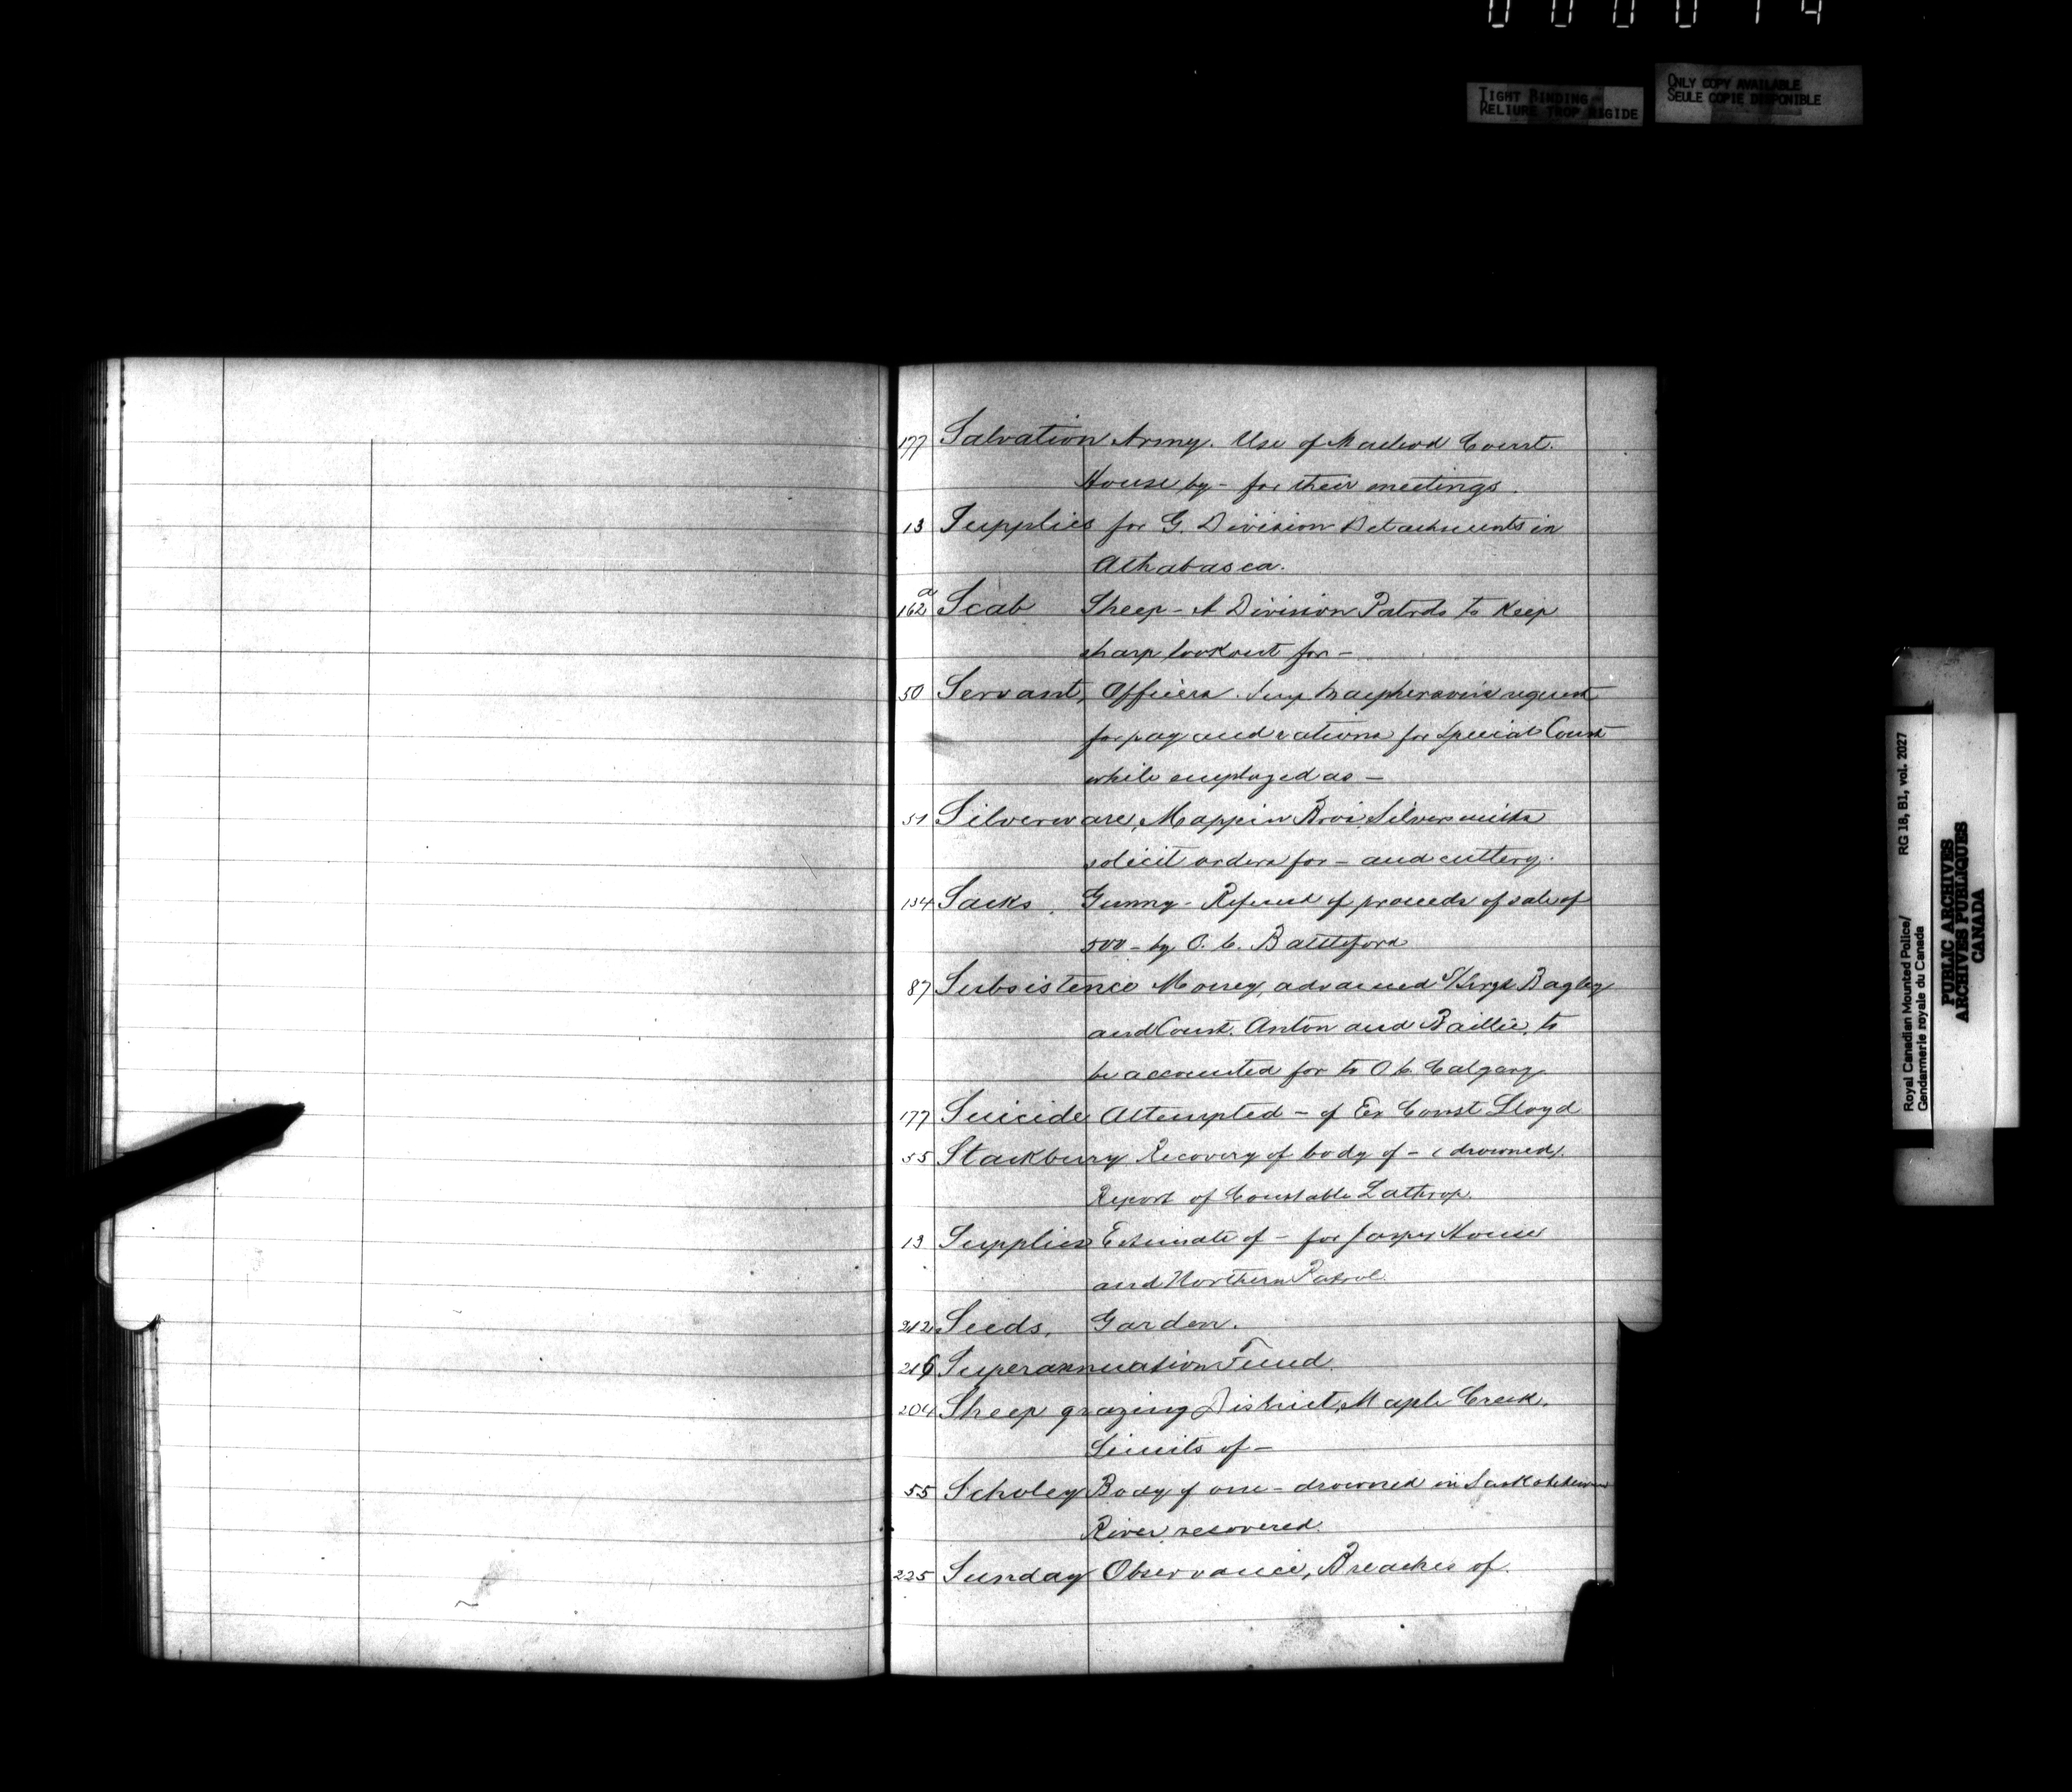 000014
TIGHT BINDING
RELIURE TROP RIGIDE
ONLY COPY AVAILABLE
SEULE COPIE DISPONIBLE
177 Salvation Army. Use of Macleod Court
House by - for their meetings.
13 Supplies for G. Division Detachments in
Athabasca.
162a Scab Sheep - A Division Patrols to Keep
sharp lookout for -
50 Servant, Officers. Sup Macpherson's request
for pay and rations for Special Const
while employed as -
51 Silverware, Mappin Bros Silversmiths
solicit orders for - and cutlery.
134 Sacks, Gunny - Refund of proceeds of sale of
500 - by O. C. Battleford
87 Subsistence Money, advanced S/Sergt Bagley
and Const. Anton and Baillie, to
be accounted for to O C. Calgary
177 Suicide Attempted - of Ex Const Lloyd
55 Stackbury Recovery of body of - (drowned).
Report of Constable Lathrop.
13 Supplies Estimate of - for Jasper House
and Northern Patrol.
212 Seeds, Garden.
216 Superannuation Fund.
204 Sheep grazing District, Maple Creek.
Limits of -
55 Scholey Body of one - drowned in Saskatchewan
River recovered.
225 Sunday Observance, Breaches of.
Royal Canadian Mounted Police/
Gendarmerie royale du Canada
RG 18, B1, vol. 2027
PUBLIC ARCHIVES
ARCHIVES PUBLIQUES
CANADA